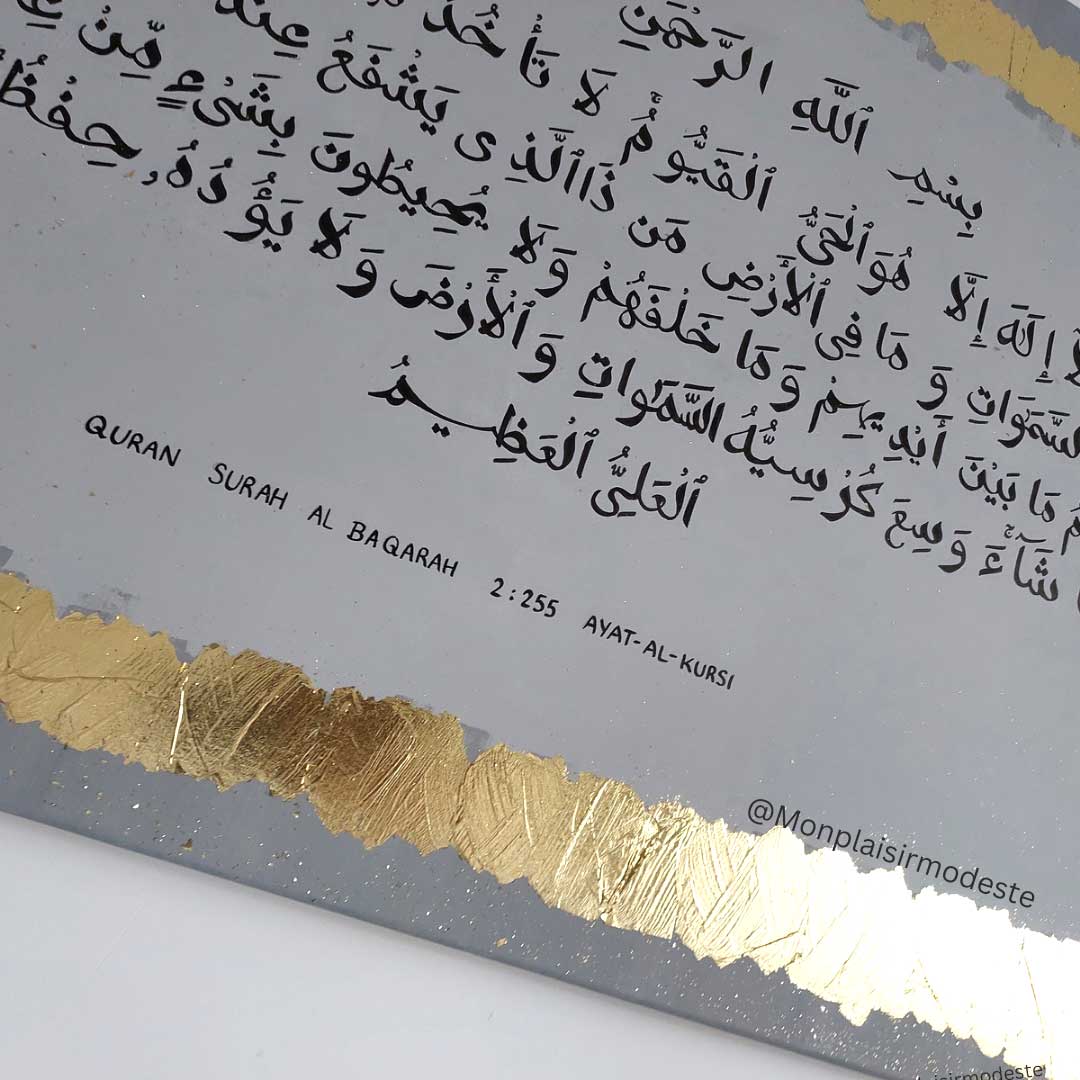 بِسْمِ ٱللَّهِ ٱلرَّحْمَٰنِ
إِلَٰهَ إِلَّا هُوَ ٱلْحَىُّ ٱلْقَيُّومُ لَا تَأْخُذُ
ٱلسَّمَٰوَاتِ وَ مَا فِى ٱلْأَرْضِ مَن ذَا ٱلَّذِى يَشْفَعُ عِندَ
مَا بَيْنَ أَيْدِيهِمْ وَ مَا خَلْفَهُمْ وَ لَا يُحِيطُونَ بِشَىْءٍ مِّنْ
شَآءَ وَسِعَ كُرْسِيُّهُ السَّمَٰوَاتِ وَ ٱلْأَرْضَ وَ لَا يَؤُدُهُۥ حِفْظُ
ٱلْعَلِىُّ ٱلْعَظِيمُ
QURAN SURAH AL BAQARAH 2:255 AYAT-AL-KURSI
@Monplaisirmodeste